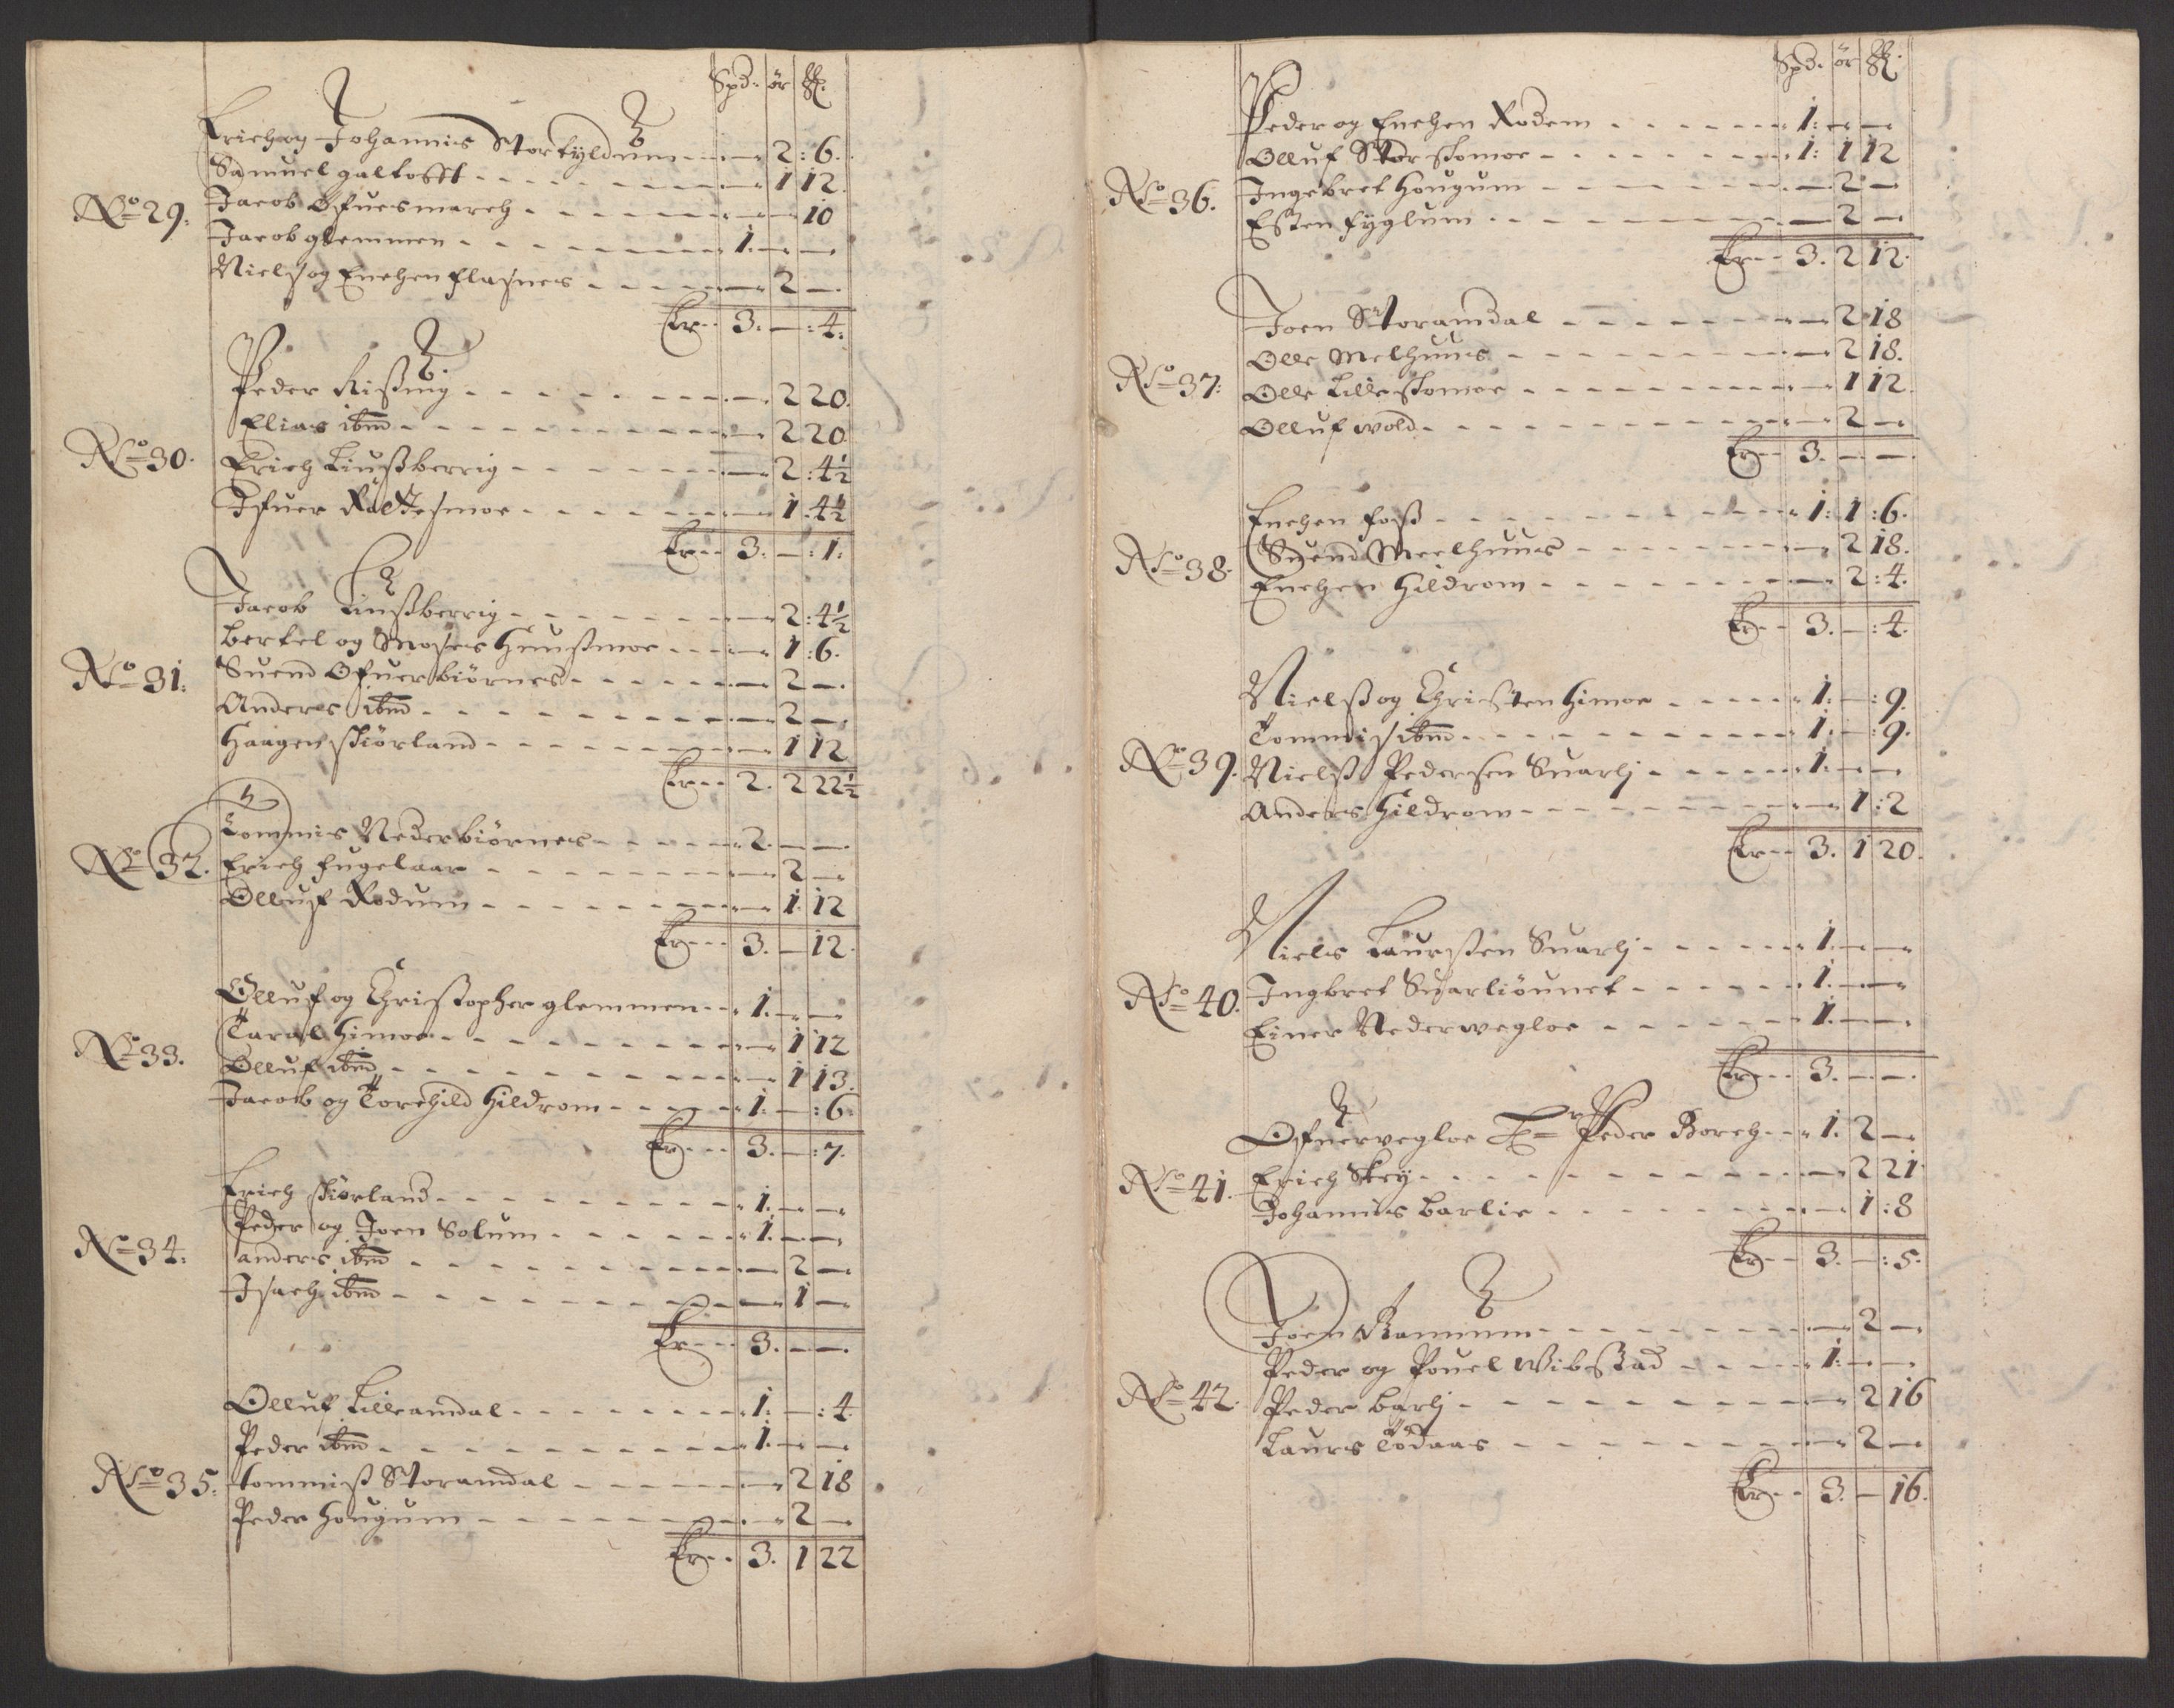 Spd: ör ß.
Erich og Johannis Storkyldum - - - — 2 : 6.
Samuel galtofft - - - — 1 12.
No 29. Jacob Ofuesmarch - - - — — 10
Jacob glemmen - - - 1. — —
Niels og Enchen flasnes - - - — 2 —
Er - - 3. — : 4.
Peder Rißing - - - — 2 20.
Elias ibm - - - — 2 20.
No 30. Erich Liußberrig - - - — 2 : 4½
Ifuer - - - — 1 . 4½
Er - - 3. — : 1.
Jacob Liußberrig - - - — 2 : 4½
Bertel og Moses Huußmoe - - - — 1 : 6.
No 31. Suend Ofuerbiörnes - - - — 2 —
Anders ibm - - - — 2 —
Haagen Skiörland - - - — 1 12
Er - - 2. 2 22½
Tommis Nederbiörnes - - - 2. — —
No 32. Erich fugelaar - - - — 2 —
Olluf Rodum - - - — 1. 12
Er - - 3. — 12.
Olluf og Christopher glemmen - - 1. — —
Taral Himoe - - - — 1 12
No 33. Olluf ibm - - - — 1 13.
Jacob og Torchild Hildrom - - - 1. — : 6.
Er - - 3. — : 7.
Erich Skiörland - - - 1. — —
Peder og Joen Solum - - - 1. — —
No 34. anders ibm - - - — 2 —
Isach ibm - - - — 1 —
Er - - 3. — —
Olluf Lilleamdal - - - 1. — : 4.
Peder ibm - - - 1. — —
No 35. tommiß Storamdal - - - — 2 18
Peder Hougum - - - — 2 —
Er - - 3. 1 22
Spd. ör ß.
Peder og Enchen Rodem - - - 1. — —
Olluf Storskomoe - - - 1. 1 12
No 36. Ingebret Hougum - - - — 2 —
Esten fyglum - - - — 2 —
Er - - 3. 2 12.
Joen Storamdal - - - — 2 18
Olle Melhuus - - - — 2 18.
No 37. Olle Lilleskomoe - - - — 1 12.
Olluf wold - - - — 2 —
Er - - 3. — —
Enchen foß - - - 1. 1 : 6.
No 38. Suend Meelhuus - - - — 2 18.
Enchen Hildrom - - - — 2 : 4.
Er - - 3. — : 4.
Nielß og Christen Himoe - - - 1. — : 9.
Tommis ibm - - - 1. — : 9.
No 39. Nielß Pedersen Suarlj - - - 1. — —
Anders Hildrom - - - — 1 : 2
Er - - 3. 1 20.
Niels Laurßen Suarlj - - - 1. — —
No 40. Ingbret Suarliöunet - - - 1. — —
Einer Nederwegloe - - - 1. — —
Er - - 3. — —
Ofuerwegloe Peder Borch - - 1. 2 —
No 41. Erich Skey - - - — 2 21
Johannis Barlie - - - — 1 : 8
Er - - 3. — : 5.
Joen Rannum - - - — 2 —
Peder og Pouel Wibstad - - - 1. — —
No 42. Peder Barlj - - - — 2 16
Laurs Tödaas - - - — 2 —
Er - - 3. — 16.